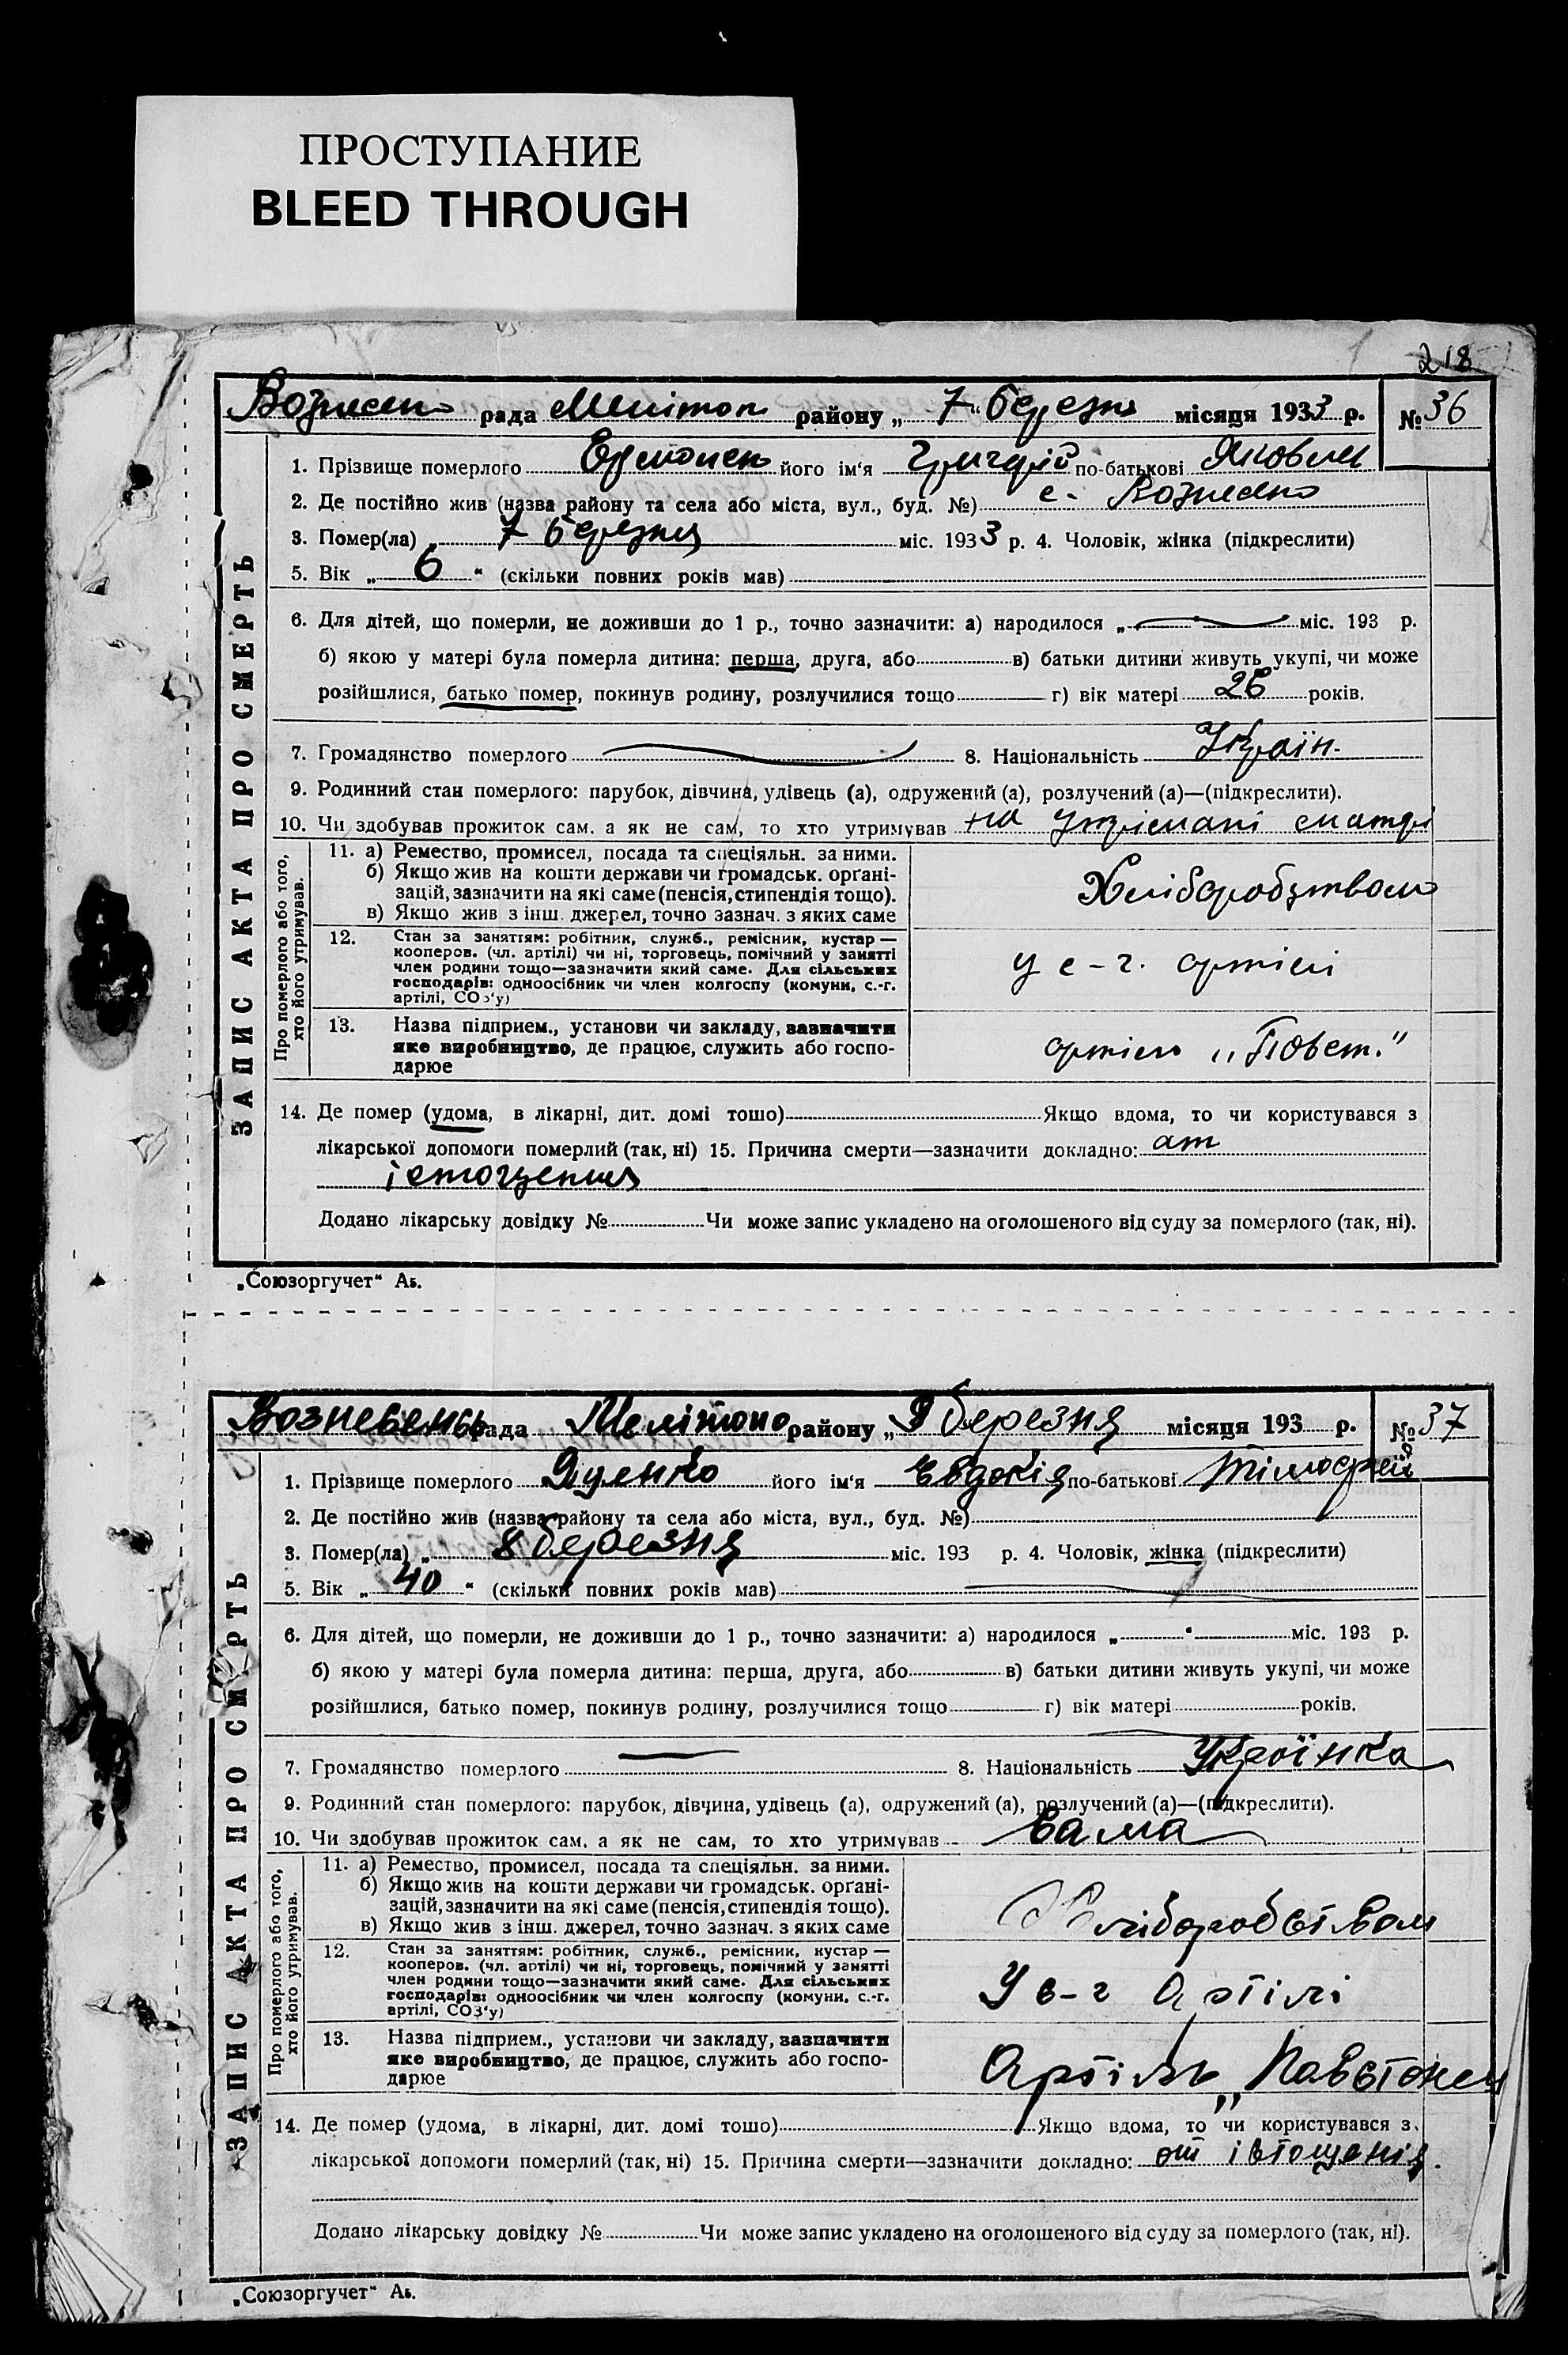 ПРОСТУПАНИЕ
BLEED THROUGH
218
Вознесен рада Мелітоп району „ 7 “ березня місяця 1933 р. № 36
1. Прізвище померлого його ім‘я Григорій по-батькові Яковл
2. Де постійно жив (назва району та села або міста, вул., буд. №) с. Вознесен
3. Помер(ла) „ 7 березня міс. 1933 р. 4. Чоловік, жінка (підкреслити)
5. Вік „ 6 “ (скільки повних років мав)
6. Для дітей, що померли, не доживши до 1 р., точно зазначити: а) народилося „ міс. 193 р.
б) якою у матері була померла дитина: перша, друга, або в) батьки дитини живуть укупі, чи може
розійшлися, батько помер, покинув родину, розлучилися тощо г) вік матері 26 років.
7. Громадянство померлого 8. Національність Україн.
9. Родинний стан померлого: парубок, дівчина, удівець (а), одружений (а), розлучений (а)—(підкреслити).
10. Чи здобував прожиток сам, а як не сам, то хто утримував на утрімані матері
Про померлого або того, хто його утримував.
11. а) Ремество, промисел, посада та спеціяльн. за ними.
б) Якщо жив на кошти держави чи громадськ. орґані-
зацій, зазначити на які саме (пенсія, стипендія тощо).
в) Якщо жив з інш. джерел, точно зазнач. з яких саме
Хліборобством
12. Стан за заняттям: робітник, служб., ремісник, кустар —
кооперов. (чл. артілі) чи ні, торговець, помічний у занятті
член родини тощо—зазначити який саме. Для сільських
господарів: одноосібник чи член колгоспу (комуни, с.-г.
артілі, СОЗ‘у)
у с-г. артілі
13. Назва підприєм., установи чи закладу, зазначити
яке виробництво, де працює, служить або госпо-
дарює
артіль „Повст.”
14. Де помер (удома, в лікарні, дит. домі тощо) Якщо вдома, то чи користувався з
лікарської допомоги померлий (так, ні) 15. Причина смерти—зазначити докладно: от
істощения
Додано лікарську довідку № Чи може запис укладено на оголошеного від суду за померлого (так, ні).
ЗАПИС АКТА ПРО СМЕРТЬ
„Союзоргучет“ Аь.
Вознесенсь рада Мелітопо району „ 9 березня місяця 193 р. № 37
1. Прізвище померлого Яценко його ім‘я Євдокія по-батькові Тімофеїв
2. Де постійно жив (назва району та села або міста, вул., буд. №)
3. Помер(ла) „ 8 березня міс. 193 р. 4. Чоловік, жінка (підкреслити)
5. Вік „ 40 “ (скільки повних років мав)
6. Для дітей, що померли, не доживши до 1 р., точно зазначити: а) народилося „ “ міс. 193 р.
б) якою у матері була померла дитина: перша, друга, або в) батьки дитини живуть укупі, чи може
розійшлися, батько помер, покинув родину, розлучилися тощо г) вік матері років.
7. Громадянство померлого 8. Національність Українка
9. Родинний стан померлого: парубок, дівчина, удівець (а), одружений (а), розлучений (а)—(підкреслити).
10. Чи здобував прожиток сам, а як не сам, то хто утримував сама
Про померлого або того, хто його утримував.
11. а) Ремество, промисел, посада та спеціяльн. за ними.
б) Якщо жив на кошти держави чи громадськ. орґані-
зацій, зазначити на які саме (пенсія, стипендія тощо).
в) Якщо жив з інш. джерел, точно зазнач. з яких саме
Хліборобством
12. Стан за заняттям: робітник, служб., ремісник, кустар —
кооперов. (чл. артілі) чи ні, торговець, помічний у занятті
член родини тощо—зазначити який саме. Для сільських
господарів: одноосібник чи член колгоспу (комуни, с.-г.
артілі, СОЗ‘у)
У с-г Артілі
13. Назва підприєм., установи чи закладу, зазначити
яке виробництво, де працює, служить або госпо-
дарює
Артіль „
14. Де помер (удома, в лікарні, дит. домі тощо) Якщо вдома, то чи користувався з
лікарської допомоги померлий (так, ні) 15. Причина смерти—зазначити докладно: от істощенія.
Додано лікарську довідку № Чи може запис укладено на оголошеного від суду за померлого (так, ні).
ЗАПИС АКТА ПРО СМЕРТЬ
„Союзоргучет“ Аь.